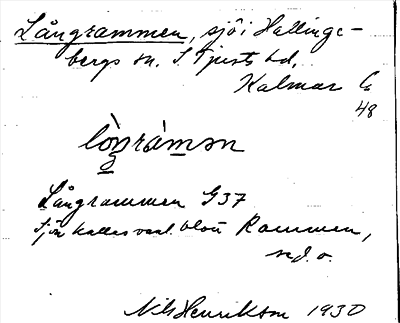 Långrammen, sjö i Hallinge-
bergs sn. S Tjusts hd,
Kalmar l
48
lòŋràmən
Långrammen G37
Sjön kallas vanl. blott Rammen,
se d. o.
Nils Henrikson 1930